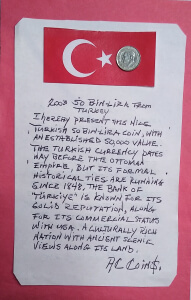 2003 50 BIN LIRA FROM
TURKEY
I HEREBY PRESENT THIS NICE
TURKISH 50 BIN LIRA COIN, WITH
AN ESTABLISHED 50,000 VALUE.
THE TURKISH CURRENCY DATES
WAY BEFORE THE OTTOMAN
EMPIRE, BUT ITS FORMAL
HISTORICAL TIES ARE RUNNING
SINCE 1848, THE BANK OF
"TÜRKIYE" IS KNOWN FOR ITS
SOLID REPUTATION, ALONG
FOR ITS COMMERCIAL STATUS
WITH USA. A CULTURALLY RICH
NATION WITH ANCIENT SCENIC
VIEWS ALONG ITS LAND.
AC COINS.